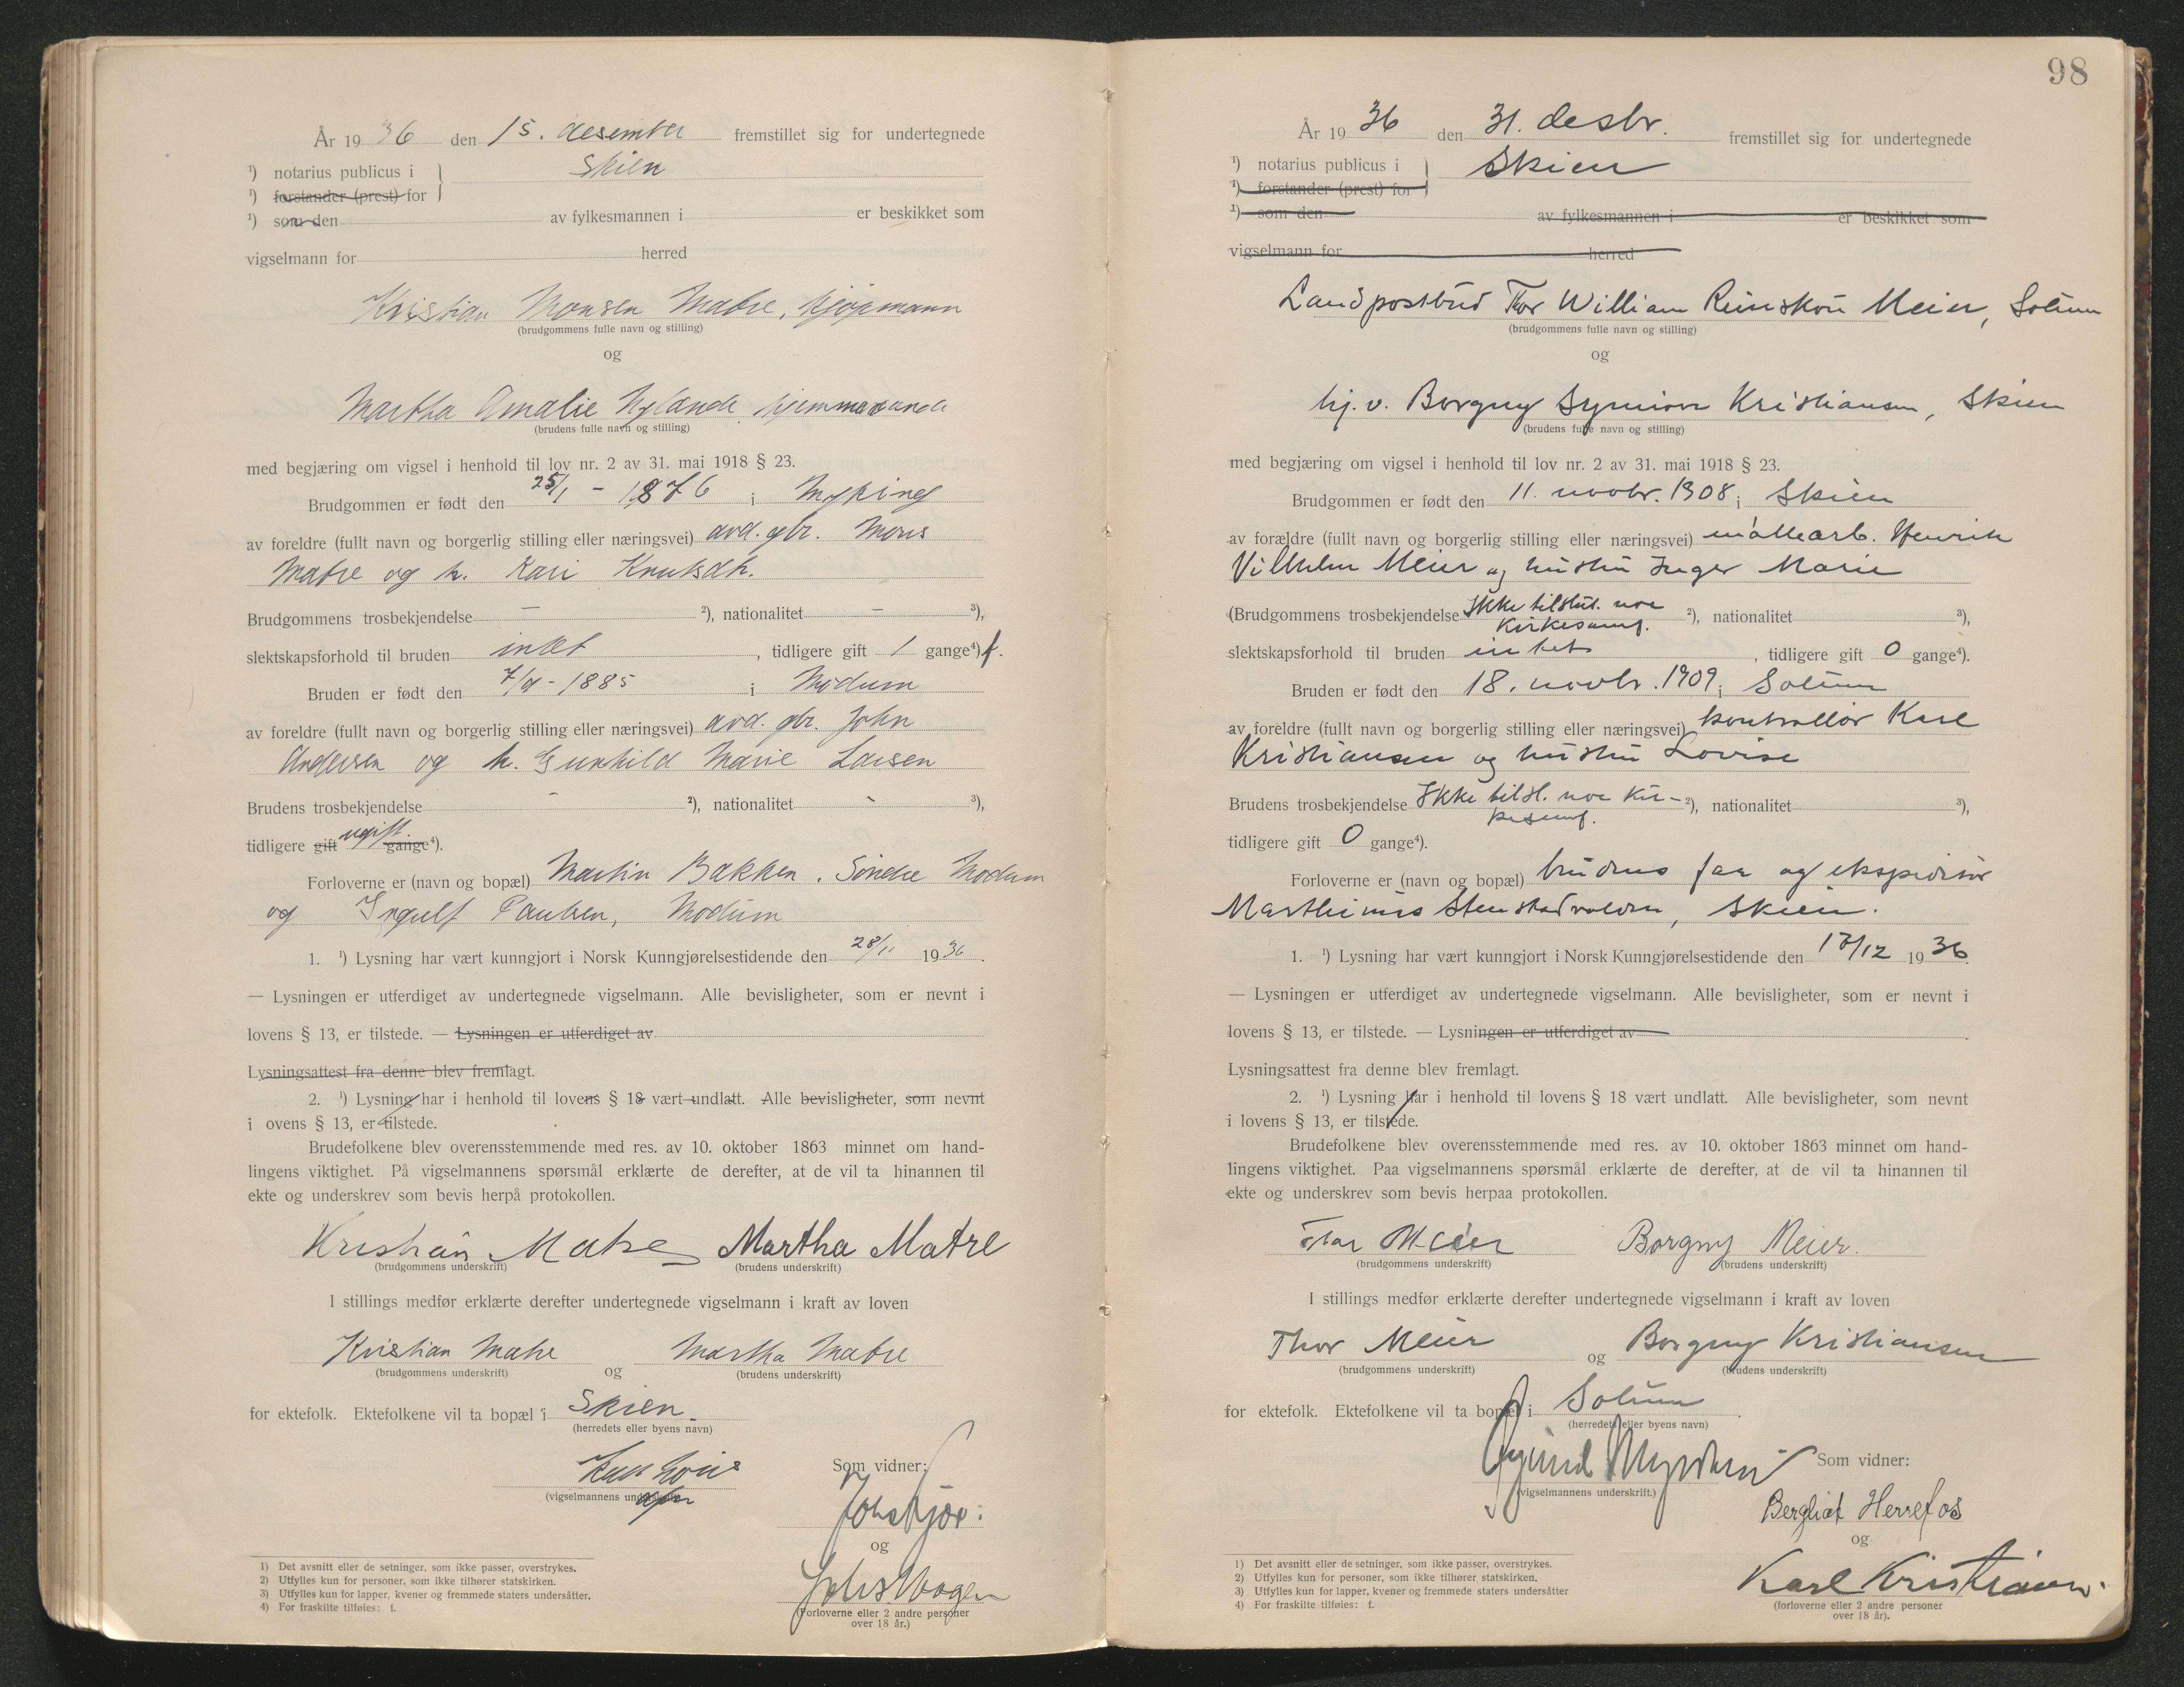 År 1936 den 15. desember fremstillet sig for undertegnede
¹) notarius publicus i Skien
¹) forstander (prest) for
¹) som den av fylkesmannen i er beskikket som
vigselmann for herred
Kristian Monsen Matre, kjøpmann
(brudgommens fulle navn og stilling)
og
Martha Amalie Nylande
(brudens fulle navn og stilling)
med begjæring om vigsel i henhold til lov nr. 2 av 31. mai 1918 § 23.
Brudgommen er født den 25/1 - 1876 i
av foreldre (fullt navn og borgerlig stilling eller næringsvei) avd. gbr. Mons
Matre og h. Kari Knutsdtr.
Brudgommens trosbekjendelse — ²), nationalitet — ³),
slektskapsforhold til bruden intet, tidligere gift 1 gange⁴) f.
Bruden er født den 7/9 - 1885 i Modum
av foreldre (fullt navn og borgerlig stilling eller næringsvei) avd. gbr. John
Andersen og h. Gunhild Marie Larsen
Brudens trosbekjendelse - ²), nationalitet - ³),
tidligere gift ugift. gange⁴).
Forloverne er (navn og bopæl) Martin Bakken. Søndre Modum
og Ingulf Paulsen, Modum
1. ¹) Lysning har vært kunngjort i Norsk Kunngjørelsestidende den 28/11 1936.
— Lysningen er utferdiget av undertegnede vigselmann. Alle bevisligheter, som er nevnt i
lovens § 13, er tilstede. — Lysningen er utferdiget av
Lysningsattest fra denne blev fremlagt.
2. ¹) Lysning har i henhold til lovens § 18 vært undlatt. Alle bevisligheter, som nevnt
i ovens § 13, er tilstede.
Brudefolkene blev overensstemmende med res. av 10. oktober 1863 minnet om hand-
lingens viktighet. På vigselmannens spørsmål erklærte de derefter, at de vil ta hinannen til
ekte og underskrev som bevis herpå protokollen.
Kristian Matre Martha Matre
(brudgommens underskrift) (brudens underskrift)
I stillings medfør erklærte derefter undertegnede vigselmann i kraft av loven
Kristian Matre og Martha Matre
(brudgommens underskrift) (brudens underskrift)
for ektefolk. Ektefolkene vil ta bopæl i Skien.
(herredets eller byens navn)
Som vidner:
(vigselmannens underskrift)
og
(Forloverne eller 2 andre personer
over 18 år.)
1) Det avsnitt eller de setninger, som ikke passer, overstrykes.
2) Utfylles kun for personer, som ikke tilhører statskirken.
3) Utfylles kun for lapper, kvener og fremmede staters undersåtter.
4) For fraskilte tilføies: f.
98
År 1936 den 31. desbr. fremstillet sig for undertegnede
¹) notarius publicus i Skien
¹) forstander (prest) for
¹) som den av fylkesmannen i er beskikket som
vigselmann for herred
Landpostbud Thor William Meier, Solum
(brudgommens fulle navn og stilling)
og
hj.v. Borgny Synnøve Kristiansen, Skien
(brudens fulle navn og stilling)
med begjæring om vigsel i henhold til lov nr. 2 av 31. mai 1918 § 23.
Brudgommen er født den 11. novbr. 1908 i Skien
av forældre (fullt navn og borgerlig stilling eller næringsvei) Henrik
Vilhelm Meier og hustru Inger Marie
(Brudgommens trosbekjendelse Ikke tilslut. noe ²), nationalitet ³),
kirkesamf.
slektskapsforhold til bruden intet, tidligere gift 0 gange⁴).
Bruden er født den 18. novbr. 1909 i Solum
av foreldre (fullt navn og borgerlig stilling eller næringsvei) kontrollør Karl
Kristiansen og hustru Lovise
Brudens trosbekjendelse Ikke tilsl. noe kir- ²), nationalitet ³),
kesamf.
tidligere gift 0 gange⁴).
Forloverne er (navn og bopæl) brudens far og ekspeditør
Marthinius Skien.
1. ¹) Lysning har vært kunngjort i Norsk Kunngjørelsestidende den 17/12 1936.
— Lysningen er utferdiget av undertegnede vigselmann. Alle bevisligheter, som er nevnt i
lovens § 13, er tilstede. — Lysningen er utferdiget av
Lysningsattest fra denne blev fremlagt.
2. ¹) Lysning har i henhold til lovens § 18 vært undlatt. Alle bevisligheter, som nevnt
i lovens § 13, er tilstede.
Brudefolkene blev overensstemmende med res. av 10. oktober 1863 minnet om hand-
lingens viktighet. Paa vigselmannens spørsmål erklærte de derefter, at de vil ta hinannen til
ekte og underskrev som bevis herpaa protokollen.
Thor Meier Borgny Meier.
(brudgommens underskrift) (brudens underskrift)
I stillings medfør erklærte derefter undertegnede vigselmann i kraft av loven
Thor Meier og Borgny Kristiansen
(brudgommens underskrift) (brudens underskrift)
for ektefolk. Ektefolkene vil ta bopæl i Solum
(herredets eller byens navn)
Som vidner:
(vigselmannens underskrift.)
Bergliot Herrefos
og
Karl Kristiansen.
(forloverne eller 2 andre personer
over 18 år).
1) Det avsnitt eller de setninger, som ikke passer, overstrykes.
2) Utfylles kun for personer, som ikke tilhører statskirken.
3) Utfylles kun for lapper, kvener og fremmede staters undersåtter
4) For fraskilte tilføies: f.